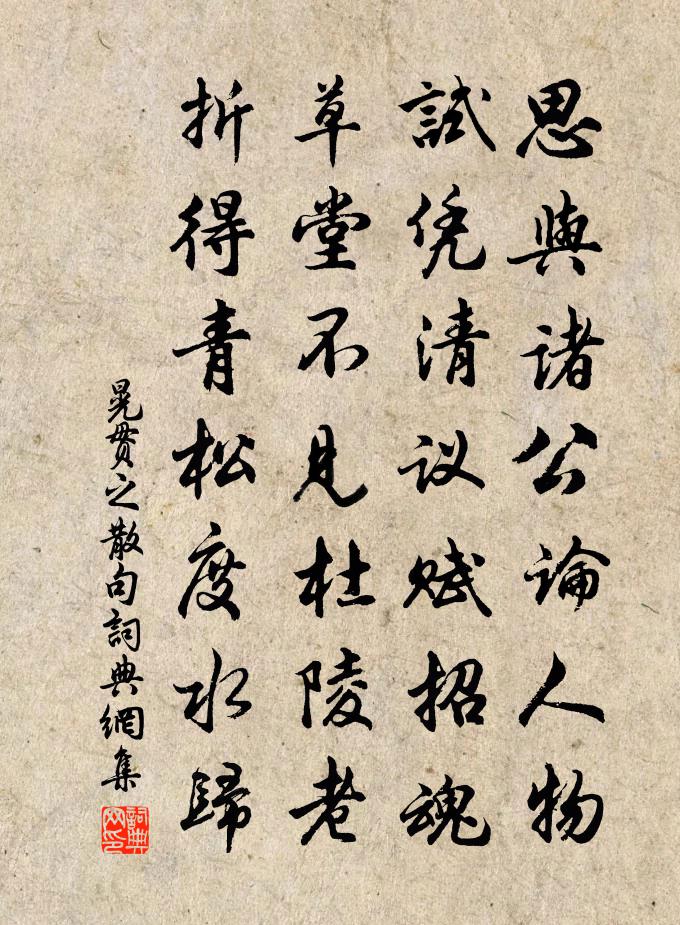 思與诸公論人物
試凭清议赋招魂
草堂不見杜陵老
折得青松度水歸
晃贯之散句詞典網集
詞典网印